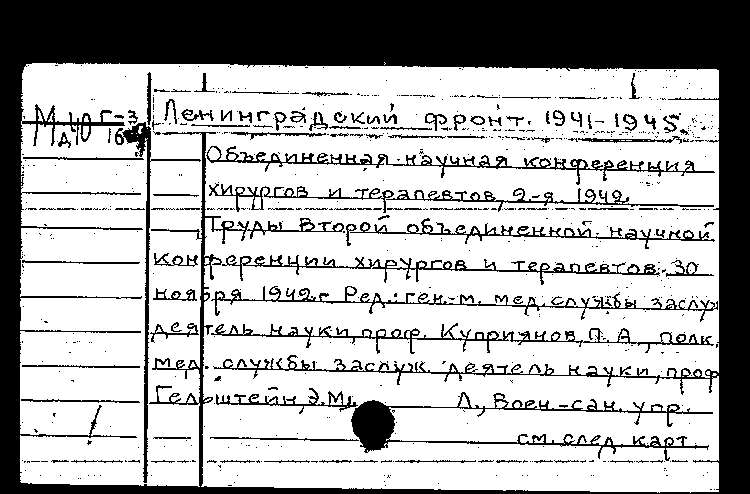 Мд40 Г-3
16
Ленинградский фронт. 1941-1945.
Объединенная научная конференция
хирургов и терапевтов, 2-я. 1942.
Труды второй объединенной научной
конференции хирургов и терапевтов. 30
ноября 1942 г. Ред.: ген.-м. мед. службы заслуж
деятель науки, проф. Куприянов, П. А., полк.
мед. службы заслуж. деятель науки, проф
Гельштейн, Э.М.
Л., Воен.-сан. упр.
см. след. карт.